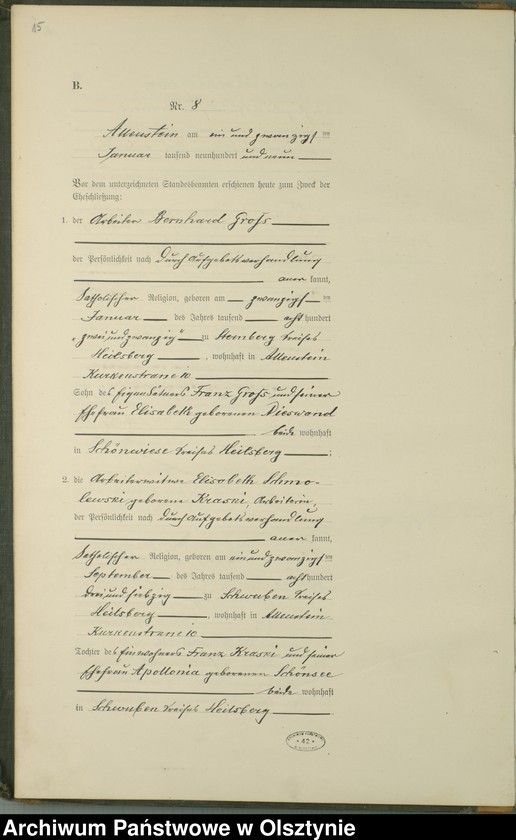 15
B.
Nr. 8
Allenstein am ein und zwanzigsten
Januar tausend neunhundert und neun
Vor dem unterzeichneten Standesbeamten erschienen heute zum Zweck der
Eheschließung:
1. der Arbeiter Bernhard Groß
der Persönlichkeit nach durch Aufgebotsverhandlung
aner kannt,
katholischer Religion, geboren am zwanzigsten
Januar des Jahres tausend acht hundert
zwei und zwanzig zu Sternberg Kreises
Heilsberg, wohnhaft in Allenstein
Kurkenstraße 10.
Sohn des Eigenkätners Franz Groß und seiner
Ehefrau Elisabeth geborenen Dieswand
beide wohnhaft
in Schönwiese Kreises Heilsberg;
2. die Arbeiterwitwe Elisabeth Schmo-
lewski geborene Kraski, Arbeiterin,
der Persönlichkeit nach durch Aufgebotsverhandlung
aner kannt,
katholischer Religion, geboren am ein und zwanzigsten
September des Jahres tausend acht hundert
drei und siebzig zu Schwuben Kreises
Heilsberg, wohnhaft in Allenstein
Kurkenstraße 10.
Tochter des Einwohners Franz Kraski und seiner
Ehefrau Apollonia geborenen Schönsee
beide wohnhaft
in Schwuben Kreises Heilsberg
42
Archiwum Państwowe w Olsztynie